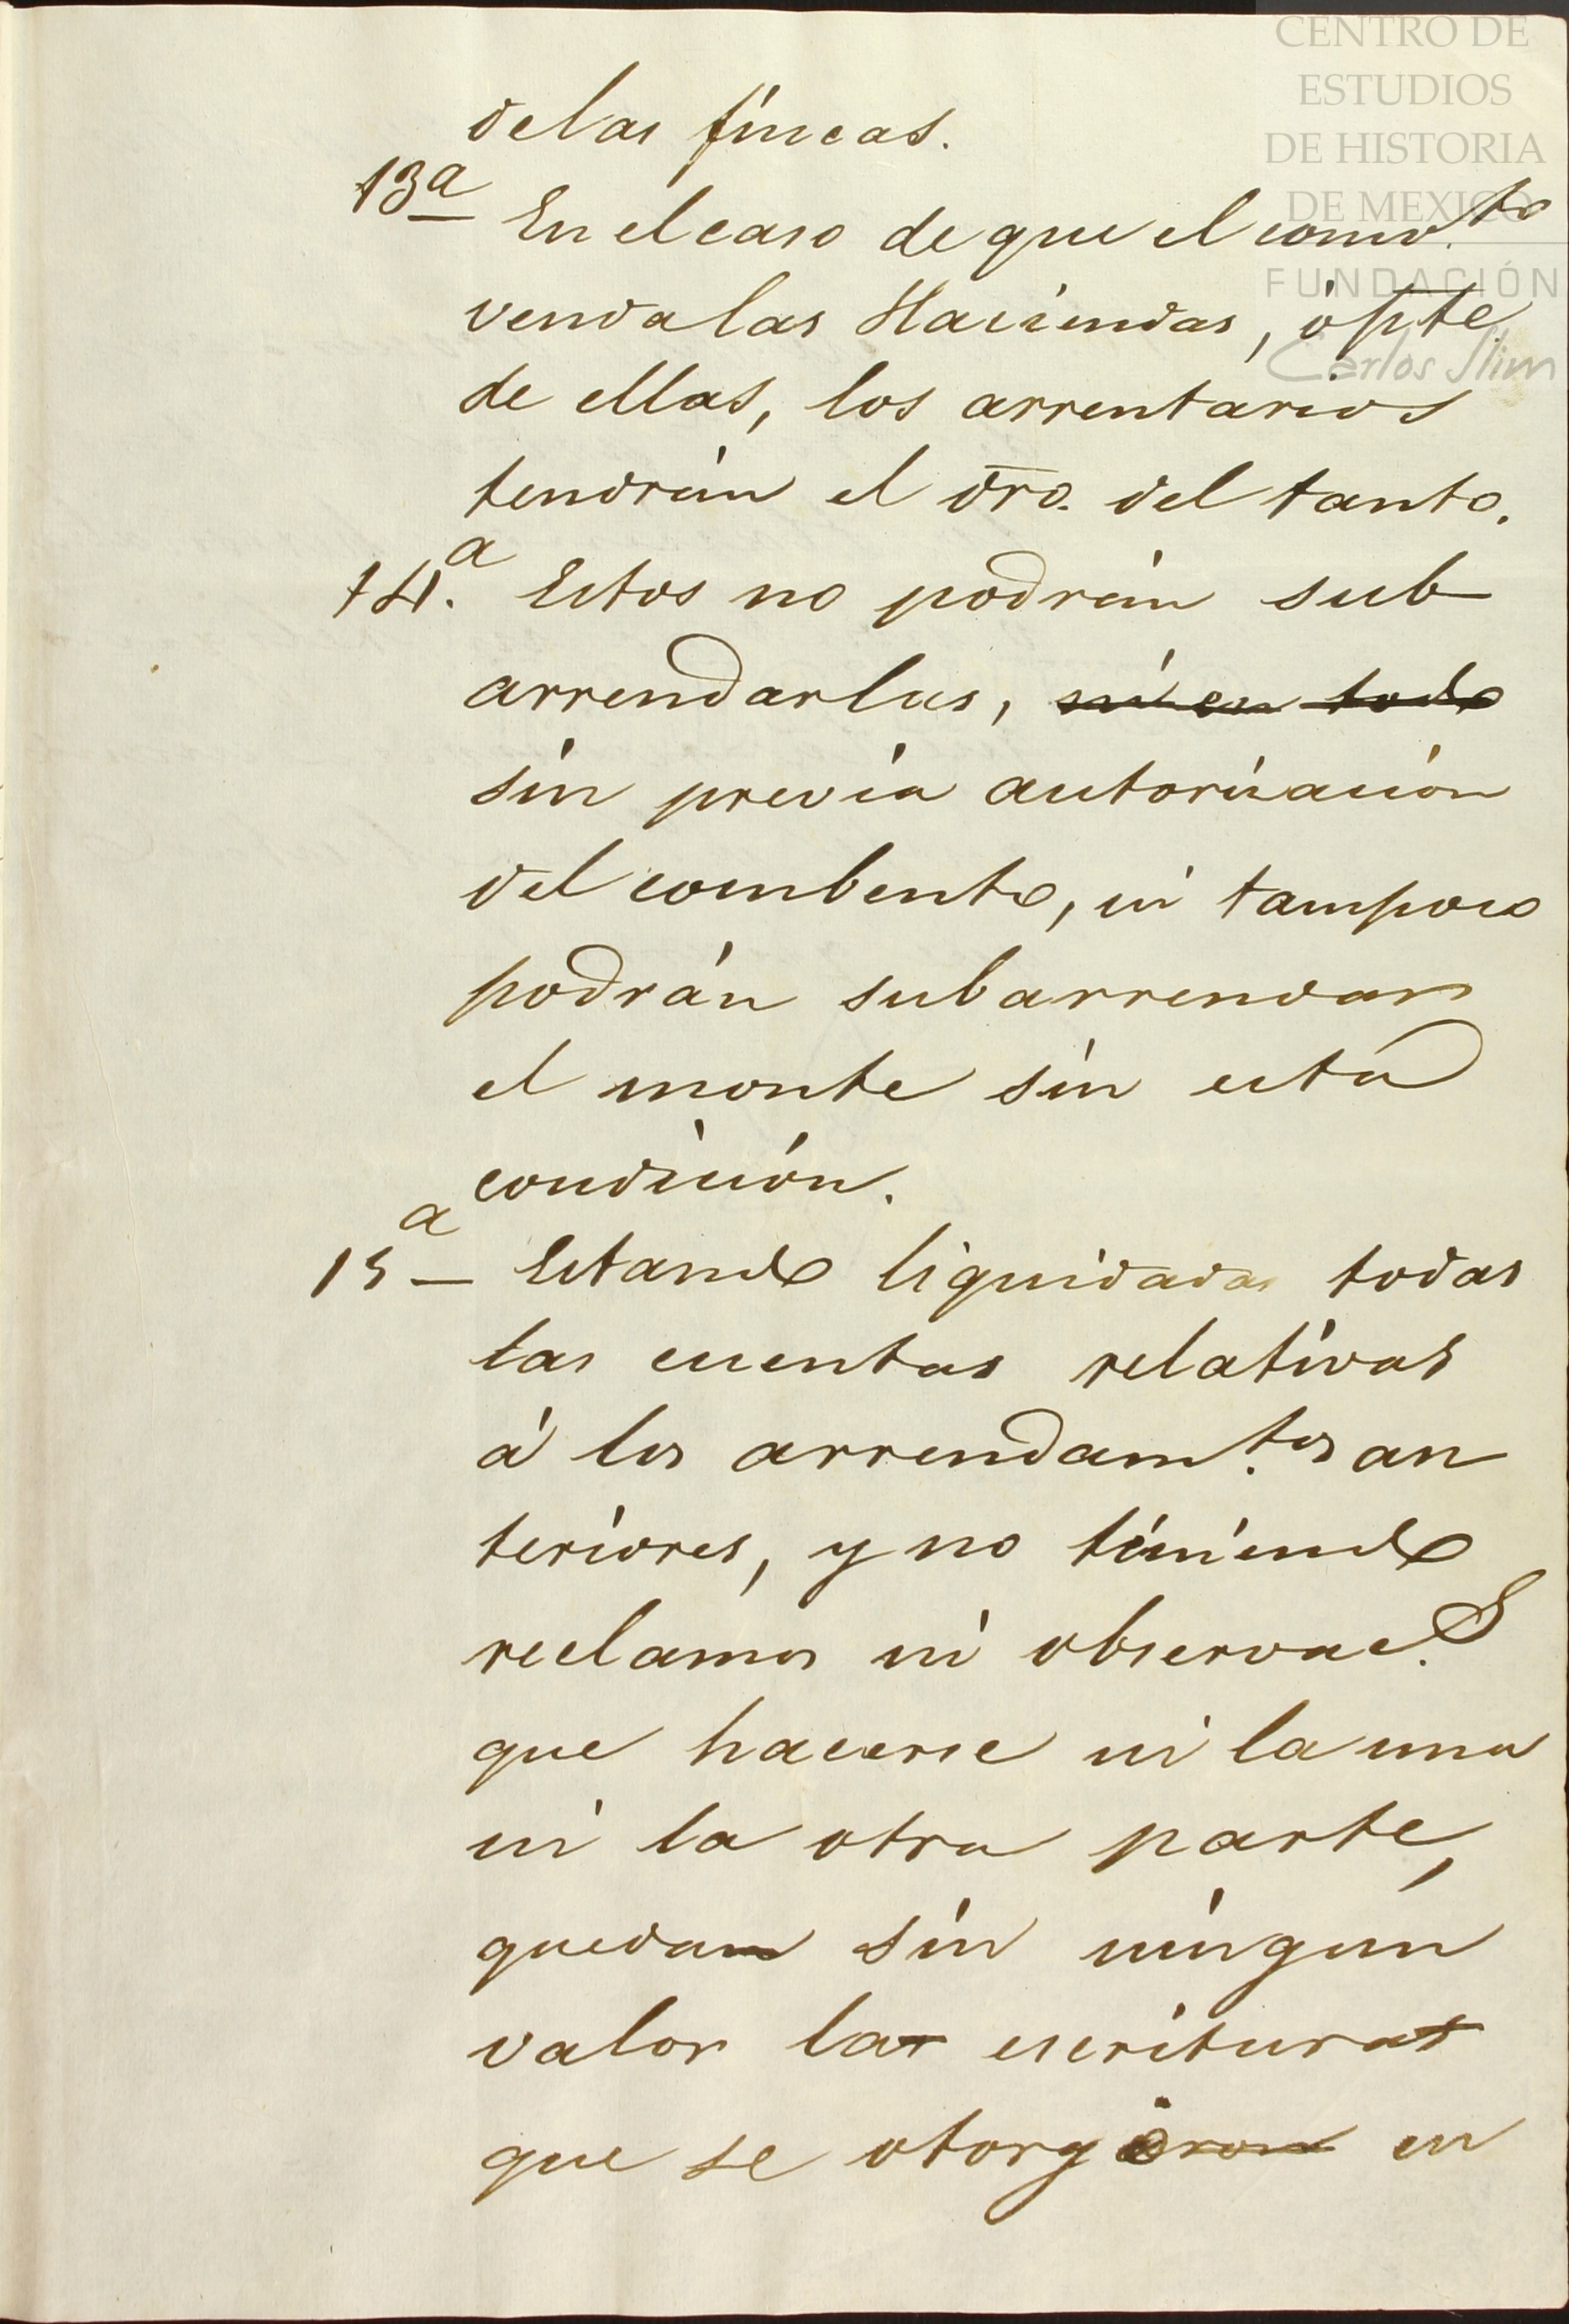 CENTRO DE
ESTUDIOS
DE HISTORIA
DE MEXICO
FUNDACIÓN
Carlos Slim
delas fincas.
13ª En el caso de que el comv.to
venda las Haciendas, ó pte
de ellas, los arrentarios
tendrán el dro. del tanto.
14.ª Estos no podrán sub
arrendarlas, ni en todo
sin previa autorización
del combento, ni tampoco
podrán subarrendar
el monte sin esta
condición.
15ª Estando liquidadas todas
las cuentas relativas
á los arrendam.tos an
teriores, y no tiniendo
reclamos ni observac.s
que hacerse ni la una
ni la otra parte,
quedan sin ningun
valor las escrituras
que se otorgaron en